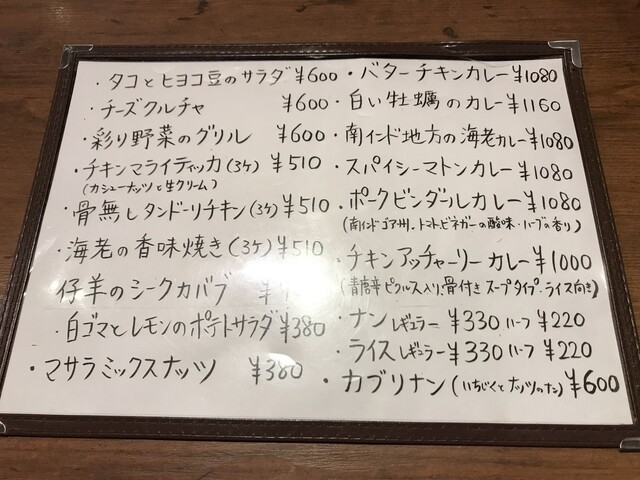 ・タコとヒヨコ豆のサラダ ¥600
・チーズクルチャ ¥600
・彩り野菜のグリル ¥600
・チキンマライティッカ(3ケ) ¥510
(カシューナッツと生クリーム)
・骨無しタンドーリチキン(3ケ) ¥510
・海老の香味焼き(3ケ) ¥510
仔羊のシークカバブ
・白ゴマとレモンのポテトサラダ ¥380
・マサラミックスナッツ ¥380
・バターチキンカレー ¥1080
・白い牡蠣のカレー ¥1160
・南インド地方の海老カレー ¥1080
・スパイシーマトンカレー ¥1080
・ポークビンダールカレー ¥1080
(南インドゴア州.トマトビネガーの酸味・ハーブの香り)
・チキンアッチャーリーカレー ¥1000
(青唐辛ピクルス入り、骨付きスープタイプ・ライス向き)
・ナン レギュラー ¥330 ハーフ ¥220
・ライス レギュラー ¥330 ハーフ ¥220
・カブリナン(いちじくとナッツのナン) ¥600